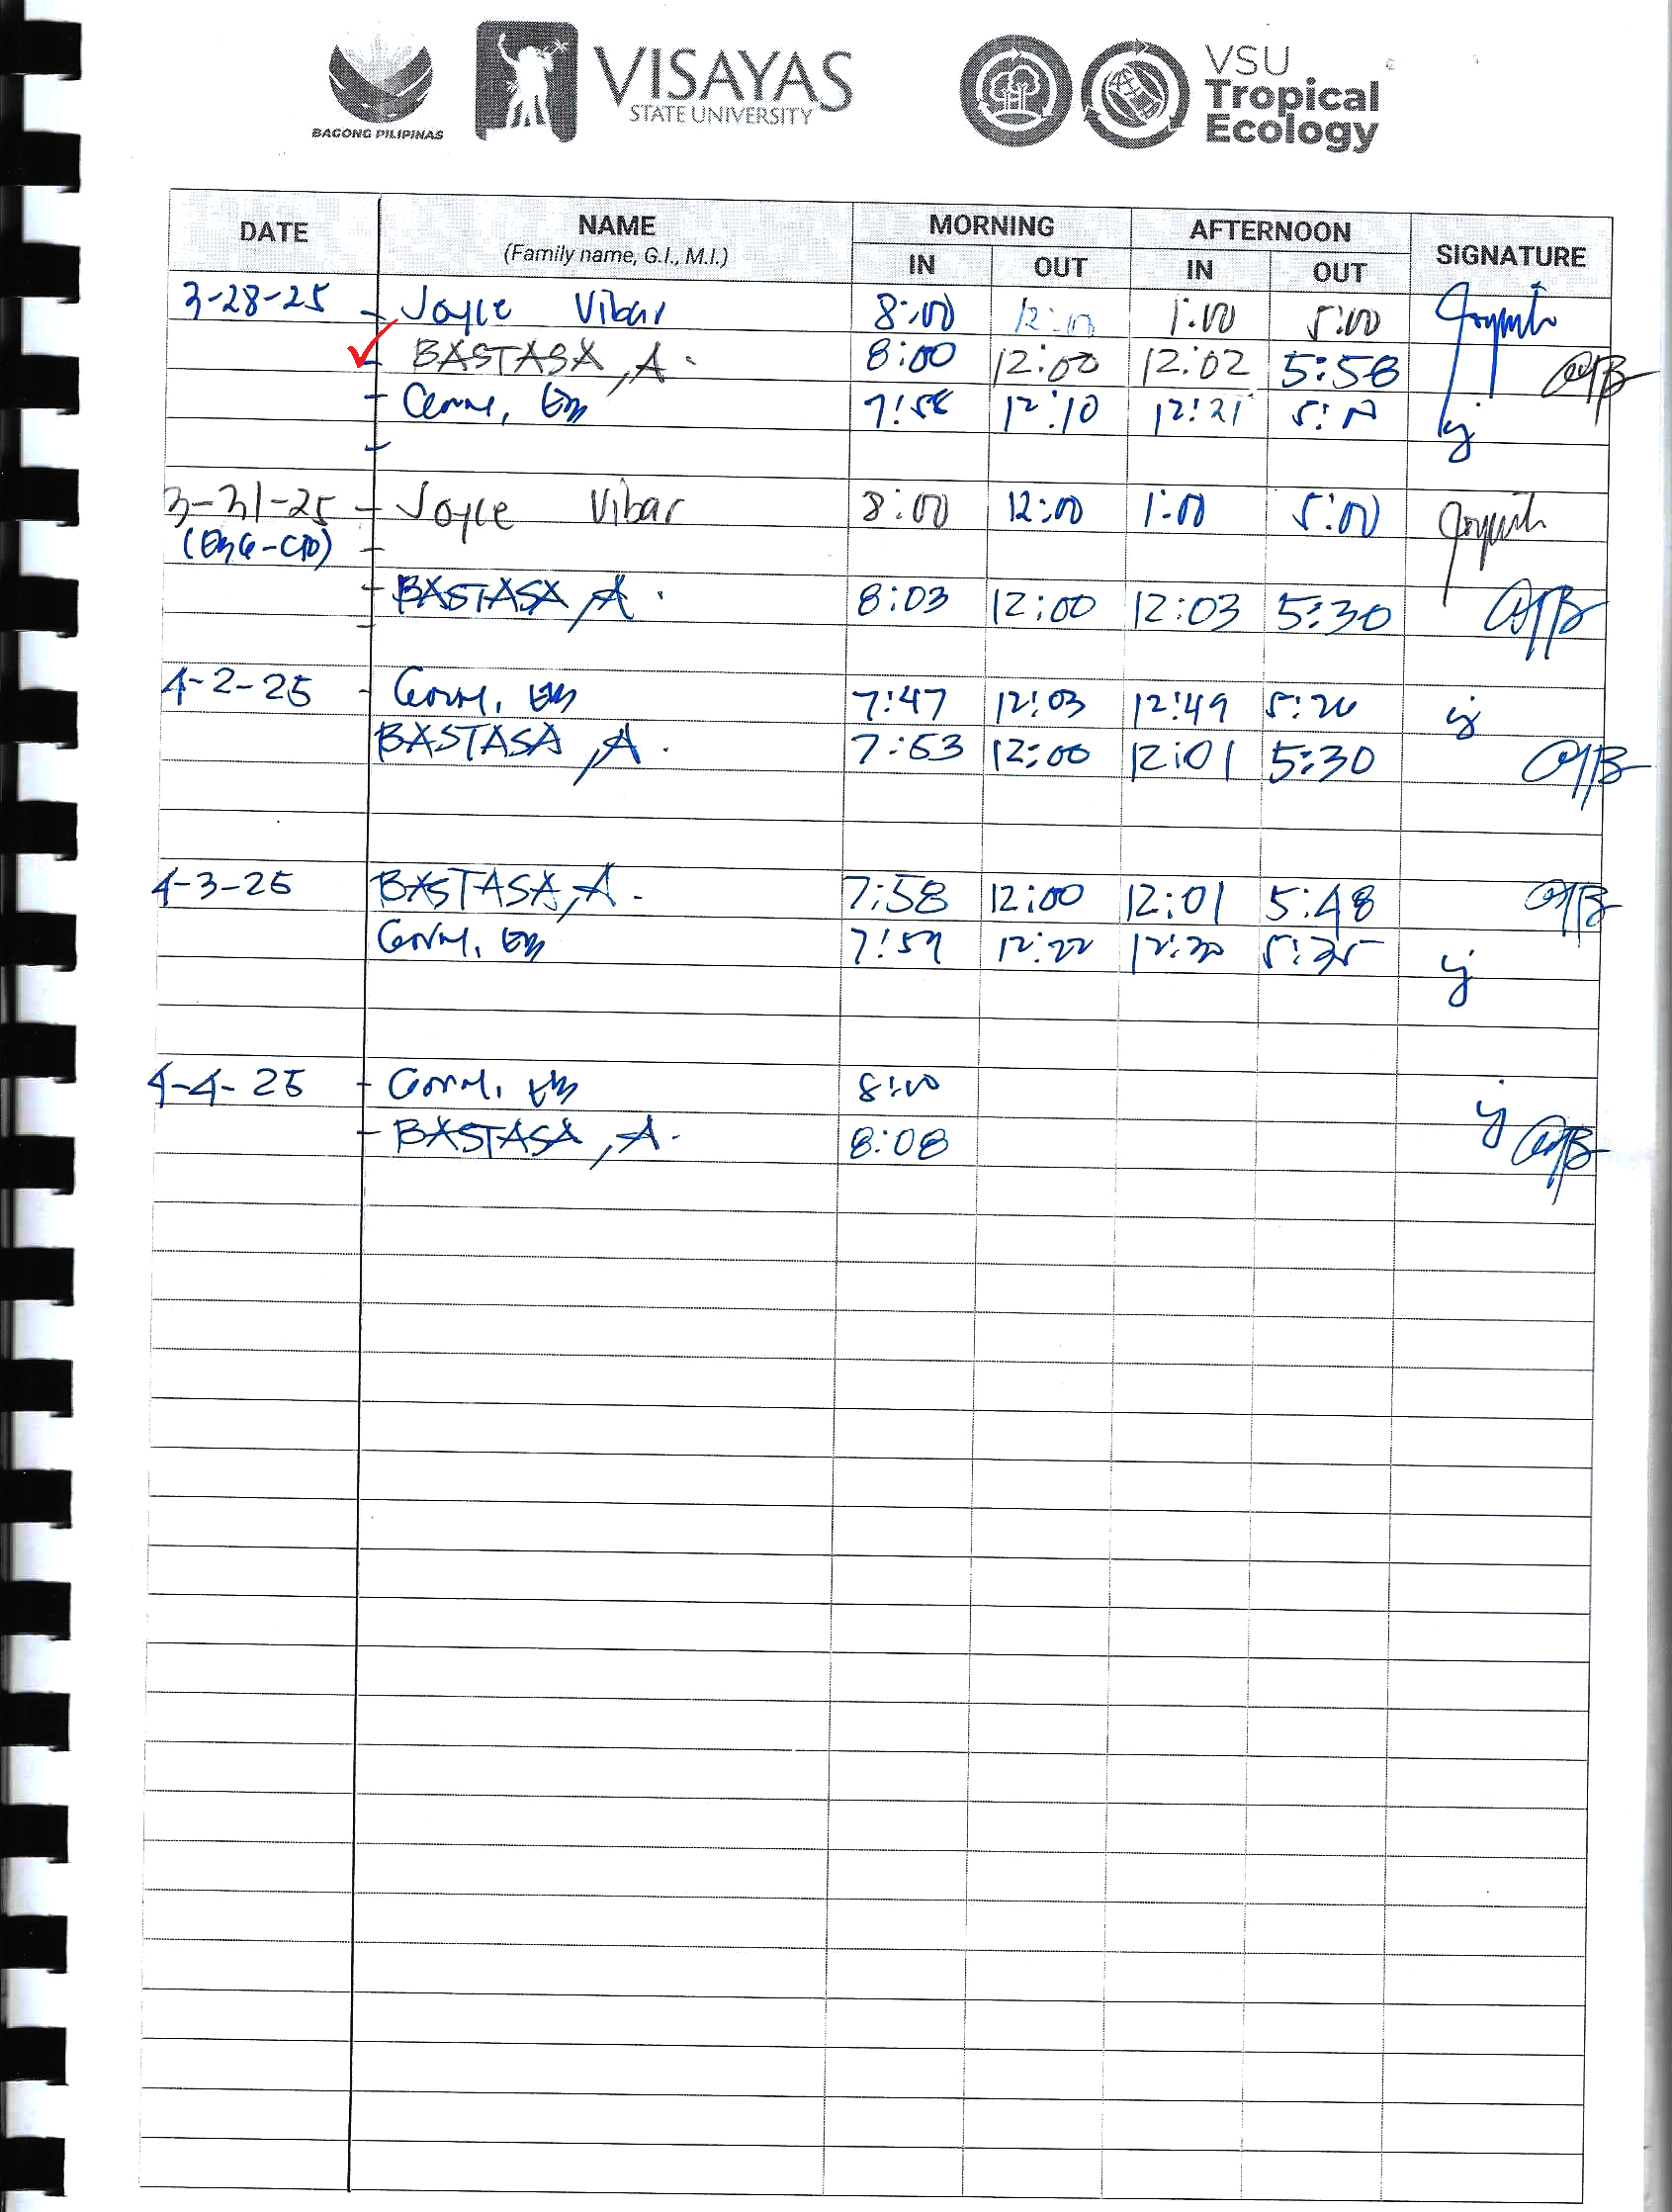 BAGONG PILIPINAS
VISAYAS
STATE UNIVERSITY
VSU
Tropical
Ecology
DATE NAME MORNING AFTERNOON SIGNATURE
(Family name, G.I., M.I.) IN OUT IN OUT
3-28-25 - Joyce Vibar 8:00 12:00 1:00 5:00
- BASTASA, A. 8:00 12:00 12:02 5:58
- 7:58 12:10 12:21
3-31-25 - Joyce Vibar 8:00 12:00 1:00 5:00
- BASTASA, A. 8:03 12:00 12:03 5:30
4-2-25 - 7:47 12:03 12:49 5:26
BASTASA, A. 7:53 12:00 12:01 5:30
4-3-25 BASTASA, A. 7:58 12:00 12:01 5:48
7:59 12:22 12:30 5:35
4-4-25 - 8:00
- BASTASA, A. 8:08